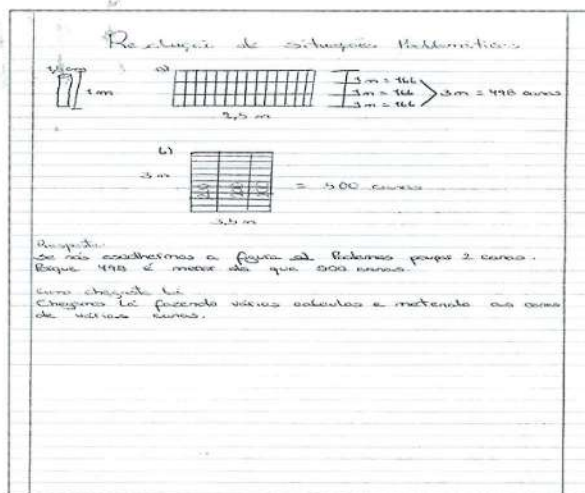 de situações
1 m
a)
1 m = 166
1 m = 166
1 m = 166
3 m = 498 canas
2,5 m
b)
3 m
= 500 canas
Resposta:
se nós escolhermos a figura a) Podemos poupar 2 canas.
Porque 498 é menor do que 500 canas.
Como chegaste lá
Chegamos lá fazendo vários calculos e metendo as canas
de várias